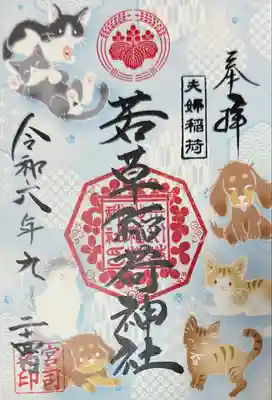 奉拝
夫婦稲荷
若草稲荷神社
令和六年九月二十四日
宮司
印